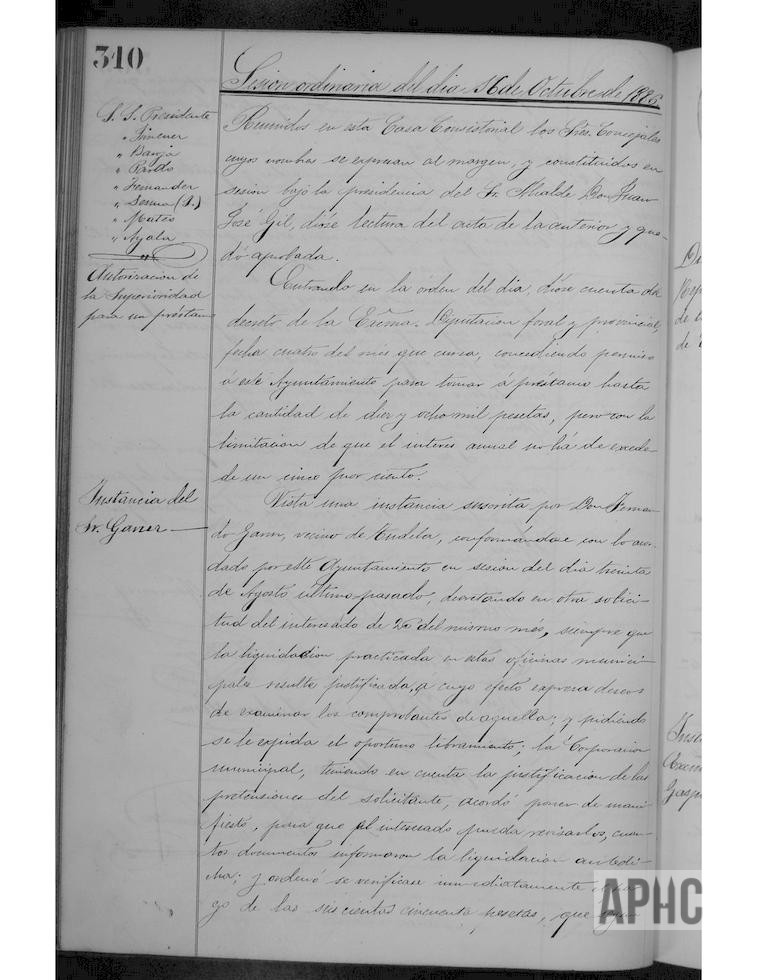 310
Sesion ordinaria del dia 16 de Octubre de 1886.
S. S. Presidente
" Jimener
" Barja
" Pardo
" Fernander
" Serna (L.)
" Mateo
" Ayala
Reunidos en esta Casa Consistorial los Sres. Concejales
cuyos nombres se expresan al margen, y constituidos en
sesion bajo la presidencia del Sr. Alcalde Don Juan
José Gil, dióse lectura del acta de la anterior y que-
dó aprobada.
Autorizacion de
la Superioridad
para un préstamo
Entrando en la órden del dia, dióse cuenta del
decreto de la Excma. Diputacion foral y provincial,
fecha cuatro del mes que cursa, concediendo permiso
á este Ayuntamiento para tomar á préstamo hasta
la cantidad de diez y ocho mil pesetas, pero con la
limitacion de que el interes anual no há de exceder
de un cinco por ciento.
Instancia del
Sr. Garver
Vista una instancia suscrita por Don Fernan-
do vecino de Tudela, conformándose con lo acor-
dado por este Ayuntamiento en sesion del dia treinta
de Agosto último pasado, decretando en otra solici-
tud del interesado de 26 del mismo mes, siempre que
la liquidacion practicada en estas oficinas munici-
pales resulte justificada, á cuyo efecto expresa deseos
de examinar los comprobantes de aquella; y pidiendo
se le expida el oportuno libramiento; la Corporacion
municipal, teniendo en cuenta la justificacion de las
pretensiones del solicitante, acordó poner de mani-
fiesto, para que el interesado pueda revisarlos, cuan-
tos documentos informaron la liquidacion antedi-
cha; y ordenó se verificase inmediatamente el pa-
go de las seiscientas cincuenta pesetas, que
APHC